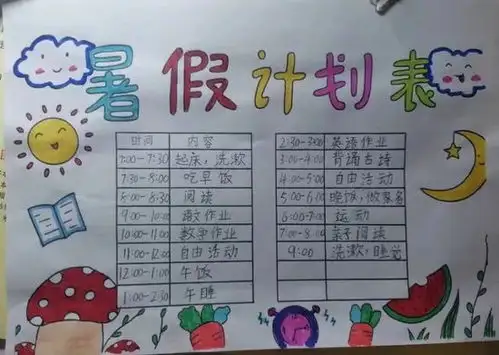 暑假计划表
时间 内容
7:00-7:30 起床,洗漱
7:30-8:00 吃早饭
8:00-8:30 阅读
9:00-10:00 语文作业
10:00-11:00 数学作业
11:00-12:00 自由活动
12:00-1:00 午饭
1:00-2:30 午睡
2:30-3:00 英语作业
3:00-4:00 背诵古诗
4:00-5:00 自由活动
5:00-6:00 晚饭,做家务
6:00-7:00 运动
7:00-8:00 亲子阅读
9:00 洗漱,睡觉